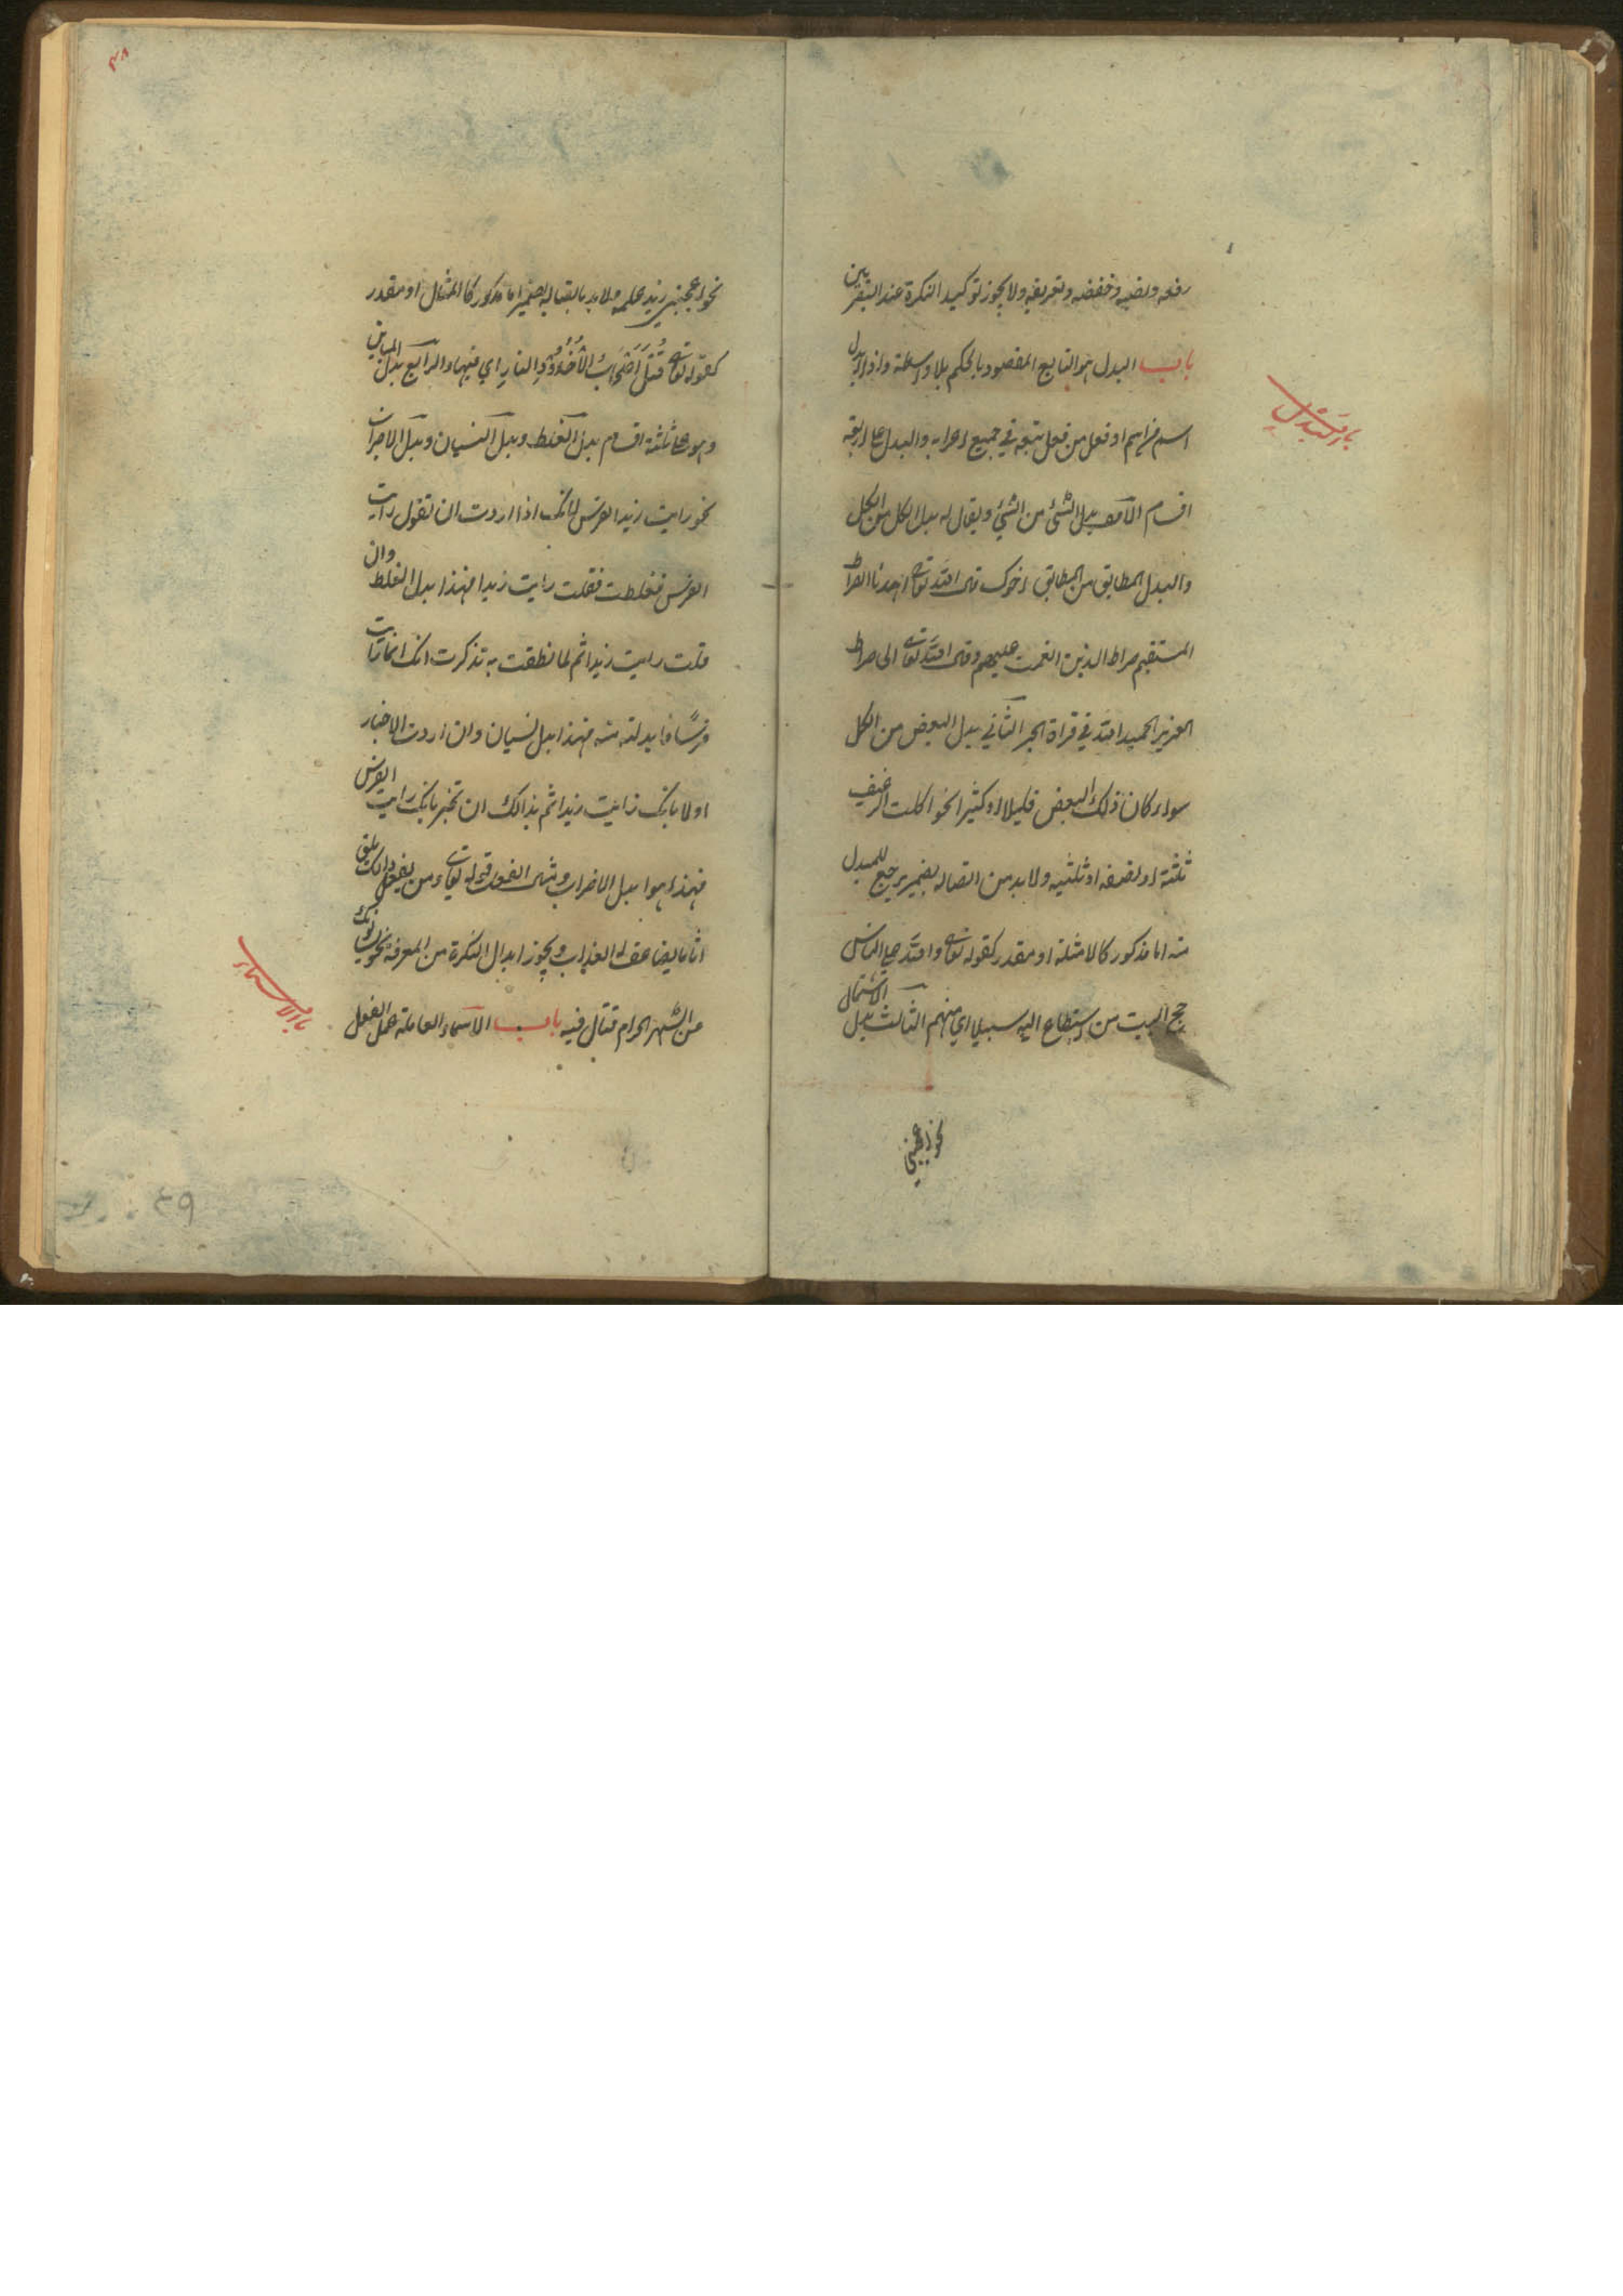 رفعه ونصبه وخفضه وتعريفه ولا يجوز توكيد النكرة عند البصريين
باب البدل هو التابع المقصود بالحكم بلا واسطة واذا ابدل
اسم من اسم او فعل من فعل تبعه في جميع اعرابه والبدل على اربعة
اقسام الاول بدل الشئ من الشئ ويقال له بدل الكل من الكل
والبدل المطابق من المطابق اخوك قال الله تعالى اهدنا الصراط
المستقيم صراط الذين انعمت عليهم وقال الله تعالى الى صراط
العزيز الحميد الله في قراة الجر الثاني بدل البعض من الكل
سواء كان ذلك البعض قليلا او كثيرا نحو اكلت الرغيف
ثلثه او نصفه او ثلثيه ولا بد من اتصاله بضمير يرجع للمبدل
منه اما مذكور كالامثلة او مقدر كقوله تعالى ولله على الناس
حج البيت من استطاع اليه سبيلا اي منهم الثالث بدل الاشتمال
نحو اعجبني
باب البدل
٤٨
نحو اعجبني زيد علمه فلا بد باتصاله بضمير اما مذكور كالمثال او مقدر
كقوله تعالى قُتِلَ اَصْحَابُ الْاُخْدُوْدِ النارِ اي فيها والرابع بدل المباين
وهو على ثلثة اقسام بدل الغلط وبدل النسيان وبدل الاضراب
نحو رايت زيدا الفرس لانك اذا اردت ان تقول رايت
الفرس فغلطت فقلت رايت زيدا فهذا بدل الغلط وان
قلت رايت زيدا ثم لما نطقت به تذكرت انك انما رايت
فرسًا فابدلته منه فهذا بدل نسيان وان اردت الاخبار
اولا بانك رايت زيدا ثم بذالك ان تخبر بانك رايت الفرس
فهذا هو بدل الاضراب ومثال الفعل قوله تعالى ومن يفعل ذلك يلق
اثاما يضاعف له العذاب ويجوز ابدال النكرة من المعرفة نحو يسئلونك
عن الشهر الحرام قتال فيه باب الاسماء العاملة عمل الفعل
باب الاسماء
٤٩